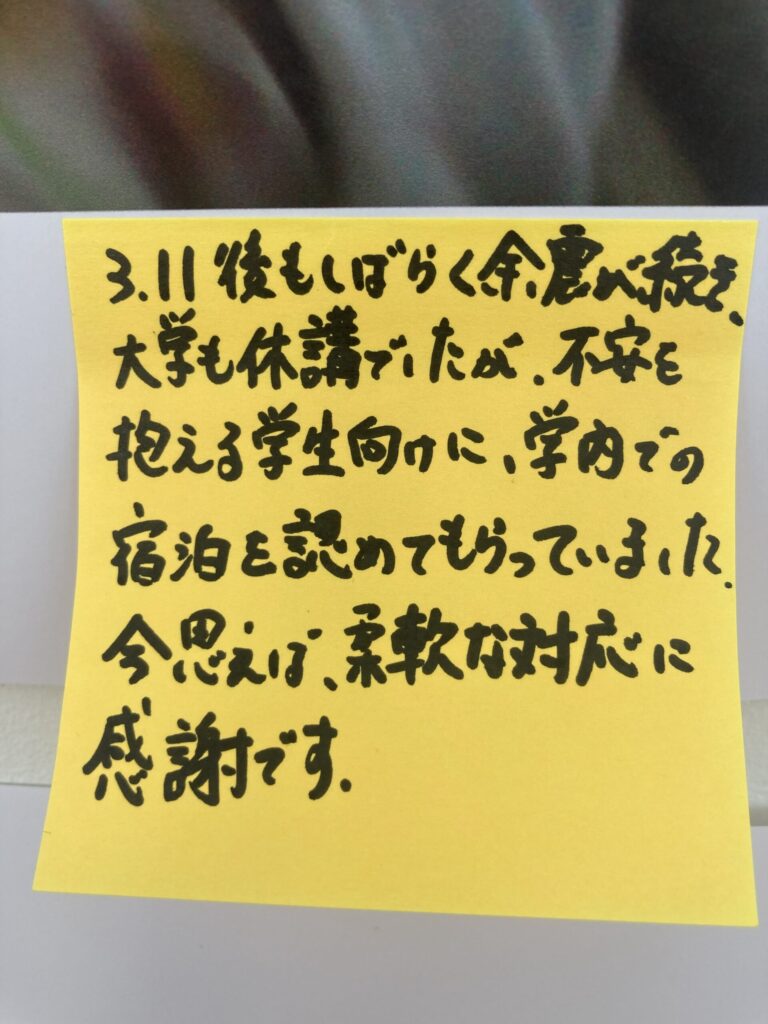 3.11後もしばらく余震が続き、
大学も休講でしたが、不安を
抱える学生向けに、学内での
宿泊を認めてもらっていました。
今思えば、柔軟な対応に
感謝です。